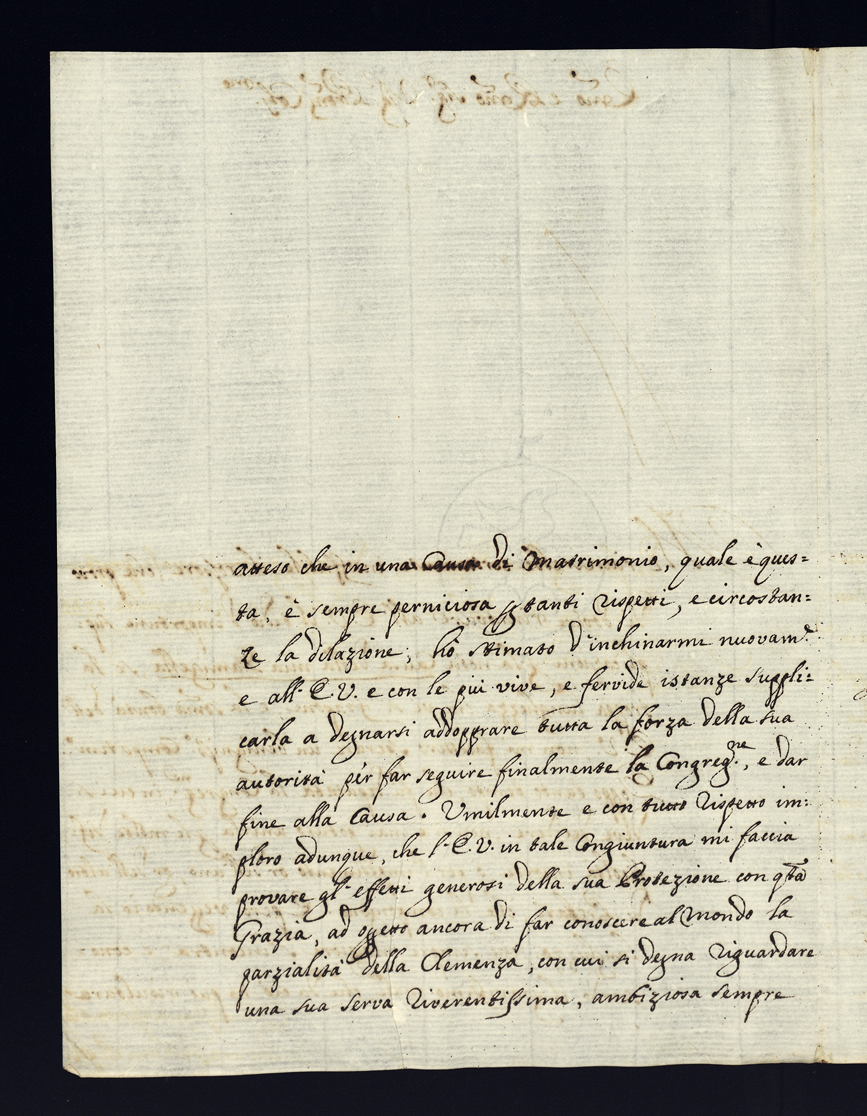 atteso che in una Causa di Matrimonio, quale è ques=
ta, è sempre perniciosa p tanti rispetti, e circostan=
ze la dilazione, hò stimato d'inchinarmi nuovam.e
e all' E.V. e con le più vive, e fervide istanze suppli=
carla a degnarsi addopprare tutta la forza della sua
autorità per far seguire finalmente la Congreg.ne, e dar
fine alla Causa. Umilmente e con tutto rispetto im=
ploro adunque, che l' E.V. in tale Congiuntura mi faccia
provare gl' effetti generosi della sua Protezione con qta
Grazia, ad ogetto ancora di far conoscere al Mondo la
parzialità della Clemenza, con cui si degna riguardare
una sua serva riverentissima, ambiziosa sempre